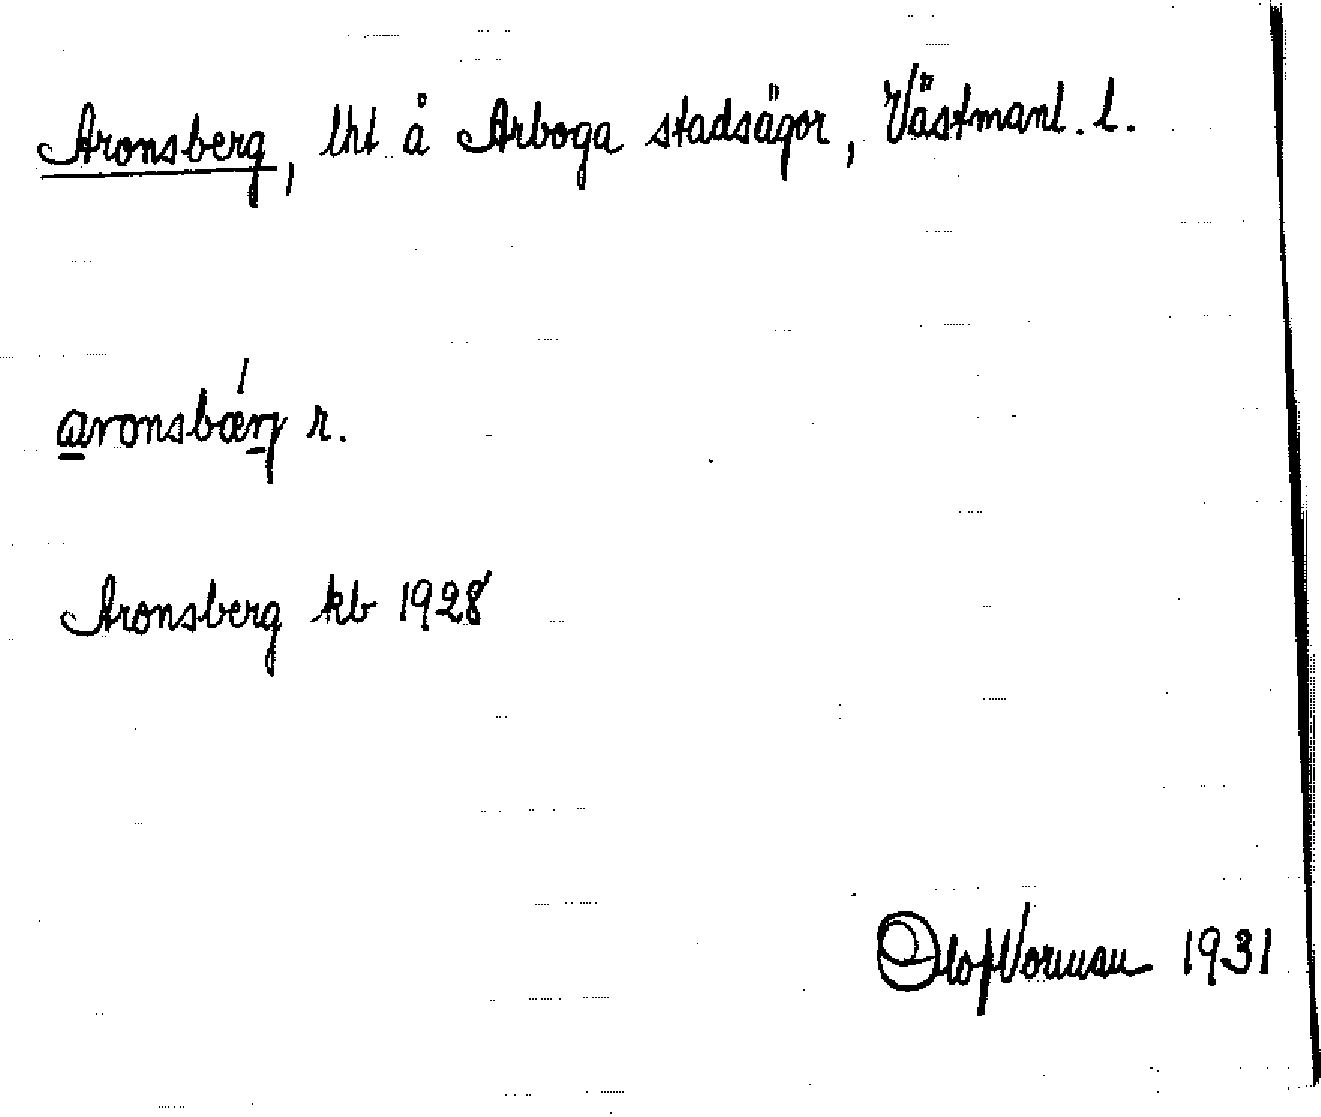 Aronsberg, lht å Arboga stadsägor, Västmanl. l.
aronsbærj r.
Aronsberg kb 1928
Olof Vorman 1931